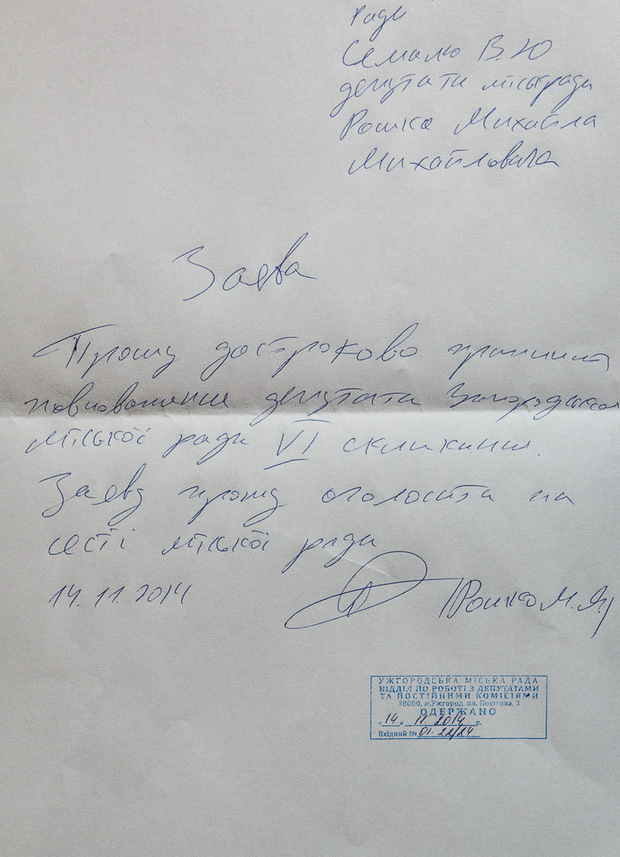 Ради
Семалю В.Ю
депутата міськради
Рошка Михайла
Михайловича
Заява
Прошу достроково припинити
повноваження депутата Ужгородської
міської ради VI скликання.
Заяву прошу оголосити на
сесії міської ради
14.11.2014 Рошко М.М
УЖГОРОДСЬКА МІСЬКА РАДА
ВІДДІЛ ПО РОБОТІ З ДЕПУТАТАМИ
ТА ПОСТІЙНИМИ КОМІСІЯМИ
88000, м.Ужгород, пл. Поштова, 3
ОДЕРЖАНО
14. 11. 2014 р.
Вхідний № 01-22/24